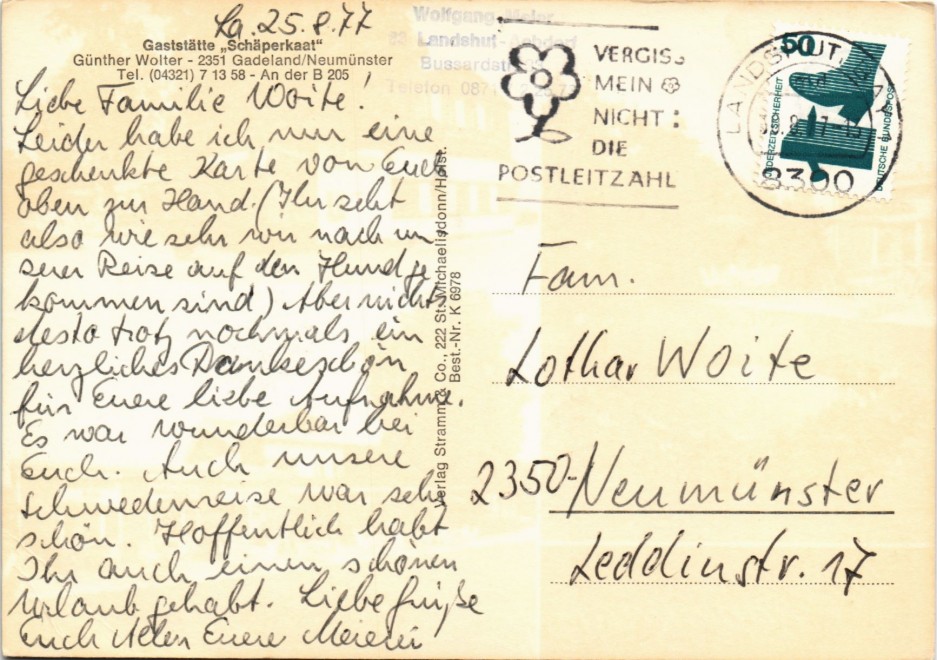 La. 25.8.77
Gaststätte „Schäperkaat"
Günther Wolter - 2351 Gadeland/Neumünster
Tel. (04321) 7 13 58 - An der B 205
Liebe Familie Woite!
Leider habe ich nur eine
geschenkte Karte von Euch
oben zur Hand. (Ihr seht
also wie sehr wir nach un
serer Reise auf den Hund ge
kommen sind) Aber nichts
desto trotz nochmals ein
herzliches Dankeschön
für Euere liebe Aufnahme.
Es war wunderbar bei
Euch. Auch unsere
Schwedenreise war sehr
schön. Hoffentlich habt
Ihr auch einen schönen
Urlaub gehabt. Liebe Grüße
Euch Allen Euere Meierei
Verlag Stramm & Co., 222 St. Michaelisdonn/Holst.
Best.-Nr. K 6978
Wolfgang Meier
83 Landshut-Achdorf
Bussardstr.
Telefon 0871
VERGISS
MEIN
NICHT:
DIE
POSTLEITZAHL
LANDSHUT
8300
50
JEDERZEIT SICHERHEIT
DEUTSCHE BUNDESPOST
Fam.
Lothar Woite
2350-Neumünster
Leddinstr. 17